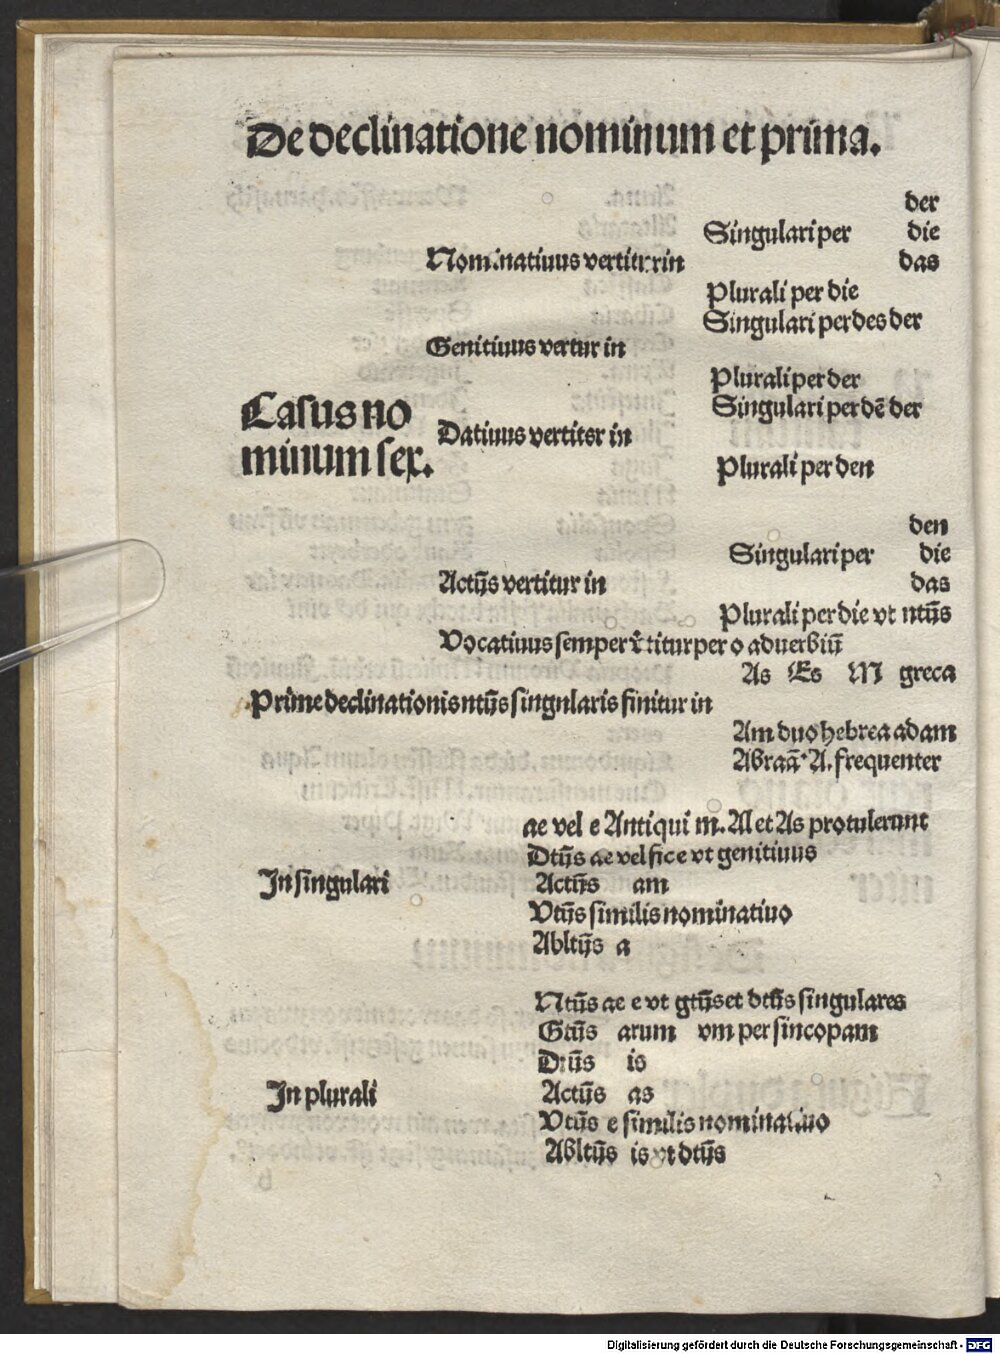 De declinatione nominum et prima.
der
Singulari per die
Nominatiuus vertitur in das
Plurali per die
Singulari per des der
Genitiuus vertur in
Plurali per der
Casus no
Singulari per dē der
Datiuus vertiter in
minum sex.
Plurali per den
den
Singulari per die
Actūs vertitur in das
Plurali per die vt ntūs
Vocatiuus semper v̄titur per o aduerbiū
As Es M greca
Prime declinationis ntūs singularis finitur in
Am duo hebrea adam
Abraā A. frequenter
ae vel e Antiqui m. Al et As protulerunt
Dtūs ae vel fic e vt genitiuus
In singulari Actūs am
Vtūs similis nominatiuo
Abltūs a
Ntūs ae e vt gtūs et dtūs singulares
Gtūs arum vm per sincopam
Dtūs is
In plurali Actūs as
Vtūs e similis nominatiuo
Abltūs is vt dtūs
Digitalisierung gefördert durch die Deutsche Forschungsgemeinschaft - DFG